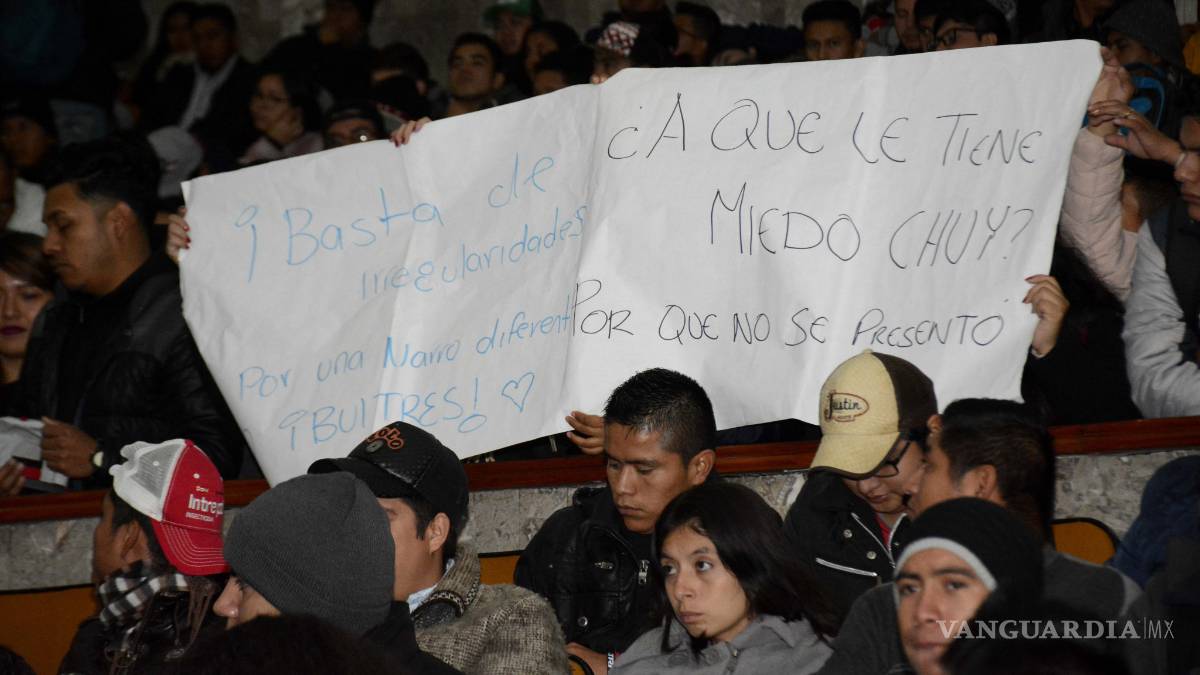 ¡Basta de
irregularidades
Por una Narro diferente
¡BUITRES! ♡
¿A QUE LE TIENE
MIEDO CHUY?
POR QUE NO SE PRESENTÓ
Justin
VANGUARDIA|MX